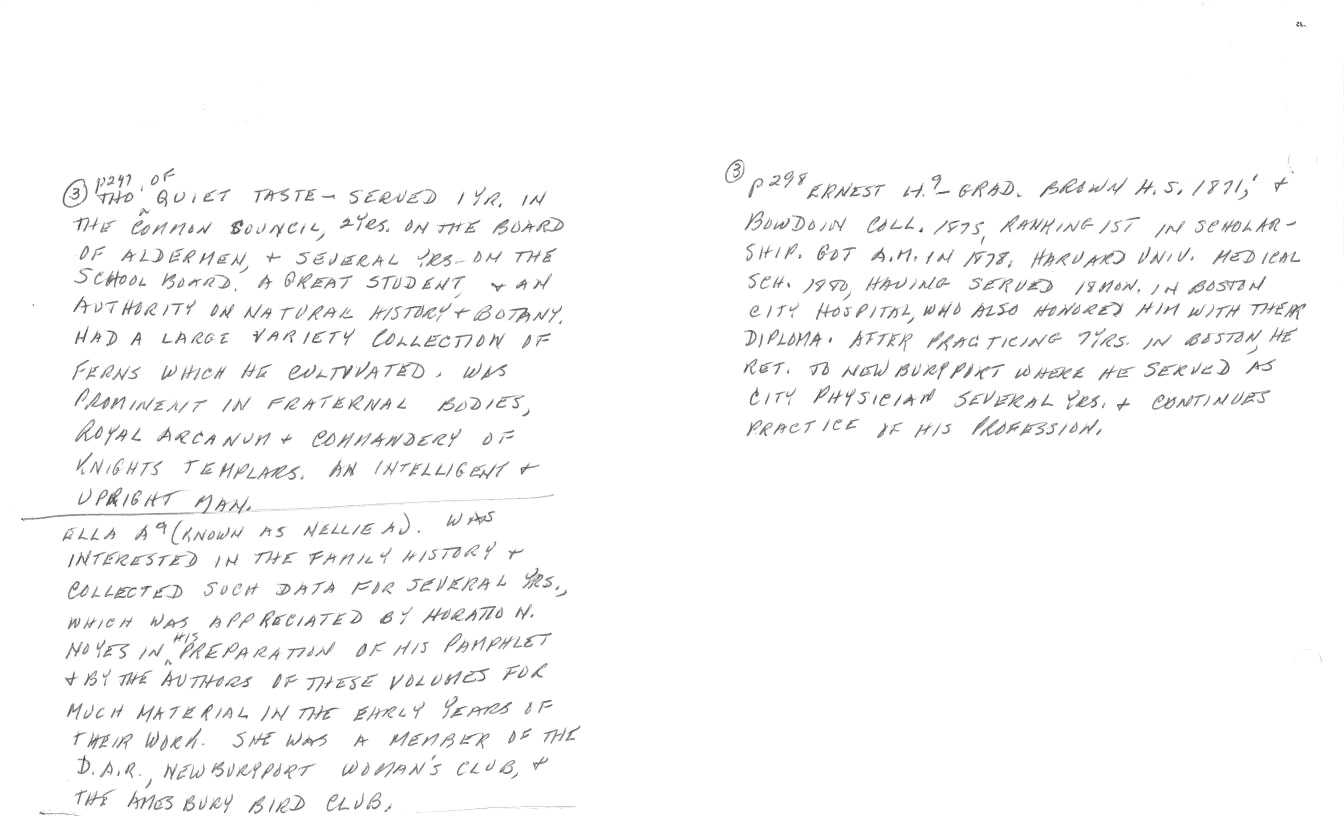 ③ p297 OF
THO QUIET TASTE - SERVED 1 YR. IN
THE COMMON COUNCIL, 2 YRS. ON THE BOARD
OF ALDERMEN, + SEVERAL YRS - ON THE
SCHOOL BOARD. A GREAT STUDENT, + AN
AUTHORITY ON NATURAL HISTORY + BOTANY.
HAD A LARGE VARIETY COLLECTION OF
FERNS WHICH HE CULTIVATED. WAS
PROMINENT IN FRATERNAL BODIES,
ROYAL ARCANUM + COMMANDERY OF
KNIGHTS TEMPLARS. AN INTELLIGENT +
UPRIGHT MAN.
ELLA A9 (KNOWN AS NELLIE A). WAS
INTERESTED IN THE FAMILY HISTORY +
COLLECTED SUCH DATA FOR SEVERAL YRS.,
WHICH WAS APPRECIATED BY HORATIO N.
NOYES IN HIS PREPARATION OF HIS PAMPHLET
+ BY THE AUTHORS OF THESE VOLUMES FOR
MUCH MATERIAL IN THE EARLY YEARS OF
THEIR WORK. SHE WAS A MEMBER OF THE
D.A.R., NEWBURYPORT WOMAN'S CLUB, +
THE AMESBURY BIRD CLUB.
③ p298 ERNEST H.9 - GRAD. BROWN H.S. 1871; +
BOWDOIN COLL. 1875, RANKING 1ST IN SCHOLAR-
SHIP. GOT A.M. IN 1878. HARVARD UNIV. MEDICAL
SCH. 1880, HAVING SERVED 18 MON. IN BOSTON
CITY HOSPITAL, WHO ALSO HONORED HIM WITH THEIR
DIPLOMA. AFTER PRACTICING 7 YRS. IN BOSTON, HE
RET. TO NEWBURPPORT WHERE HE SERVED AS
CITY PHYSICIAN SEVERAL YRS. + CONTINUES
PRACTICE OF HIS PROFESSION.